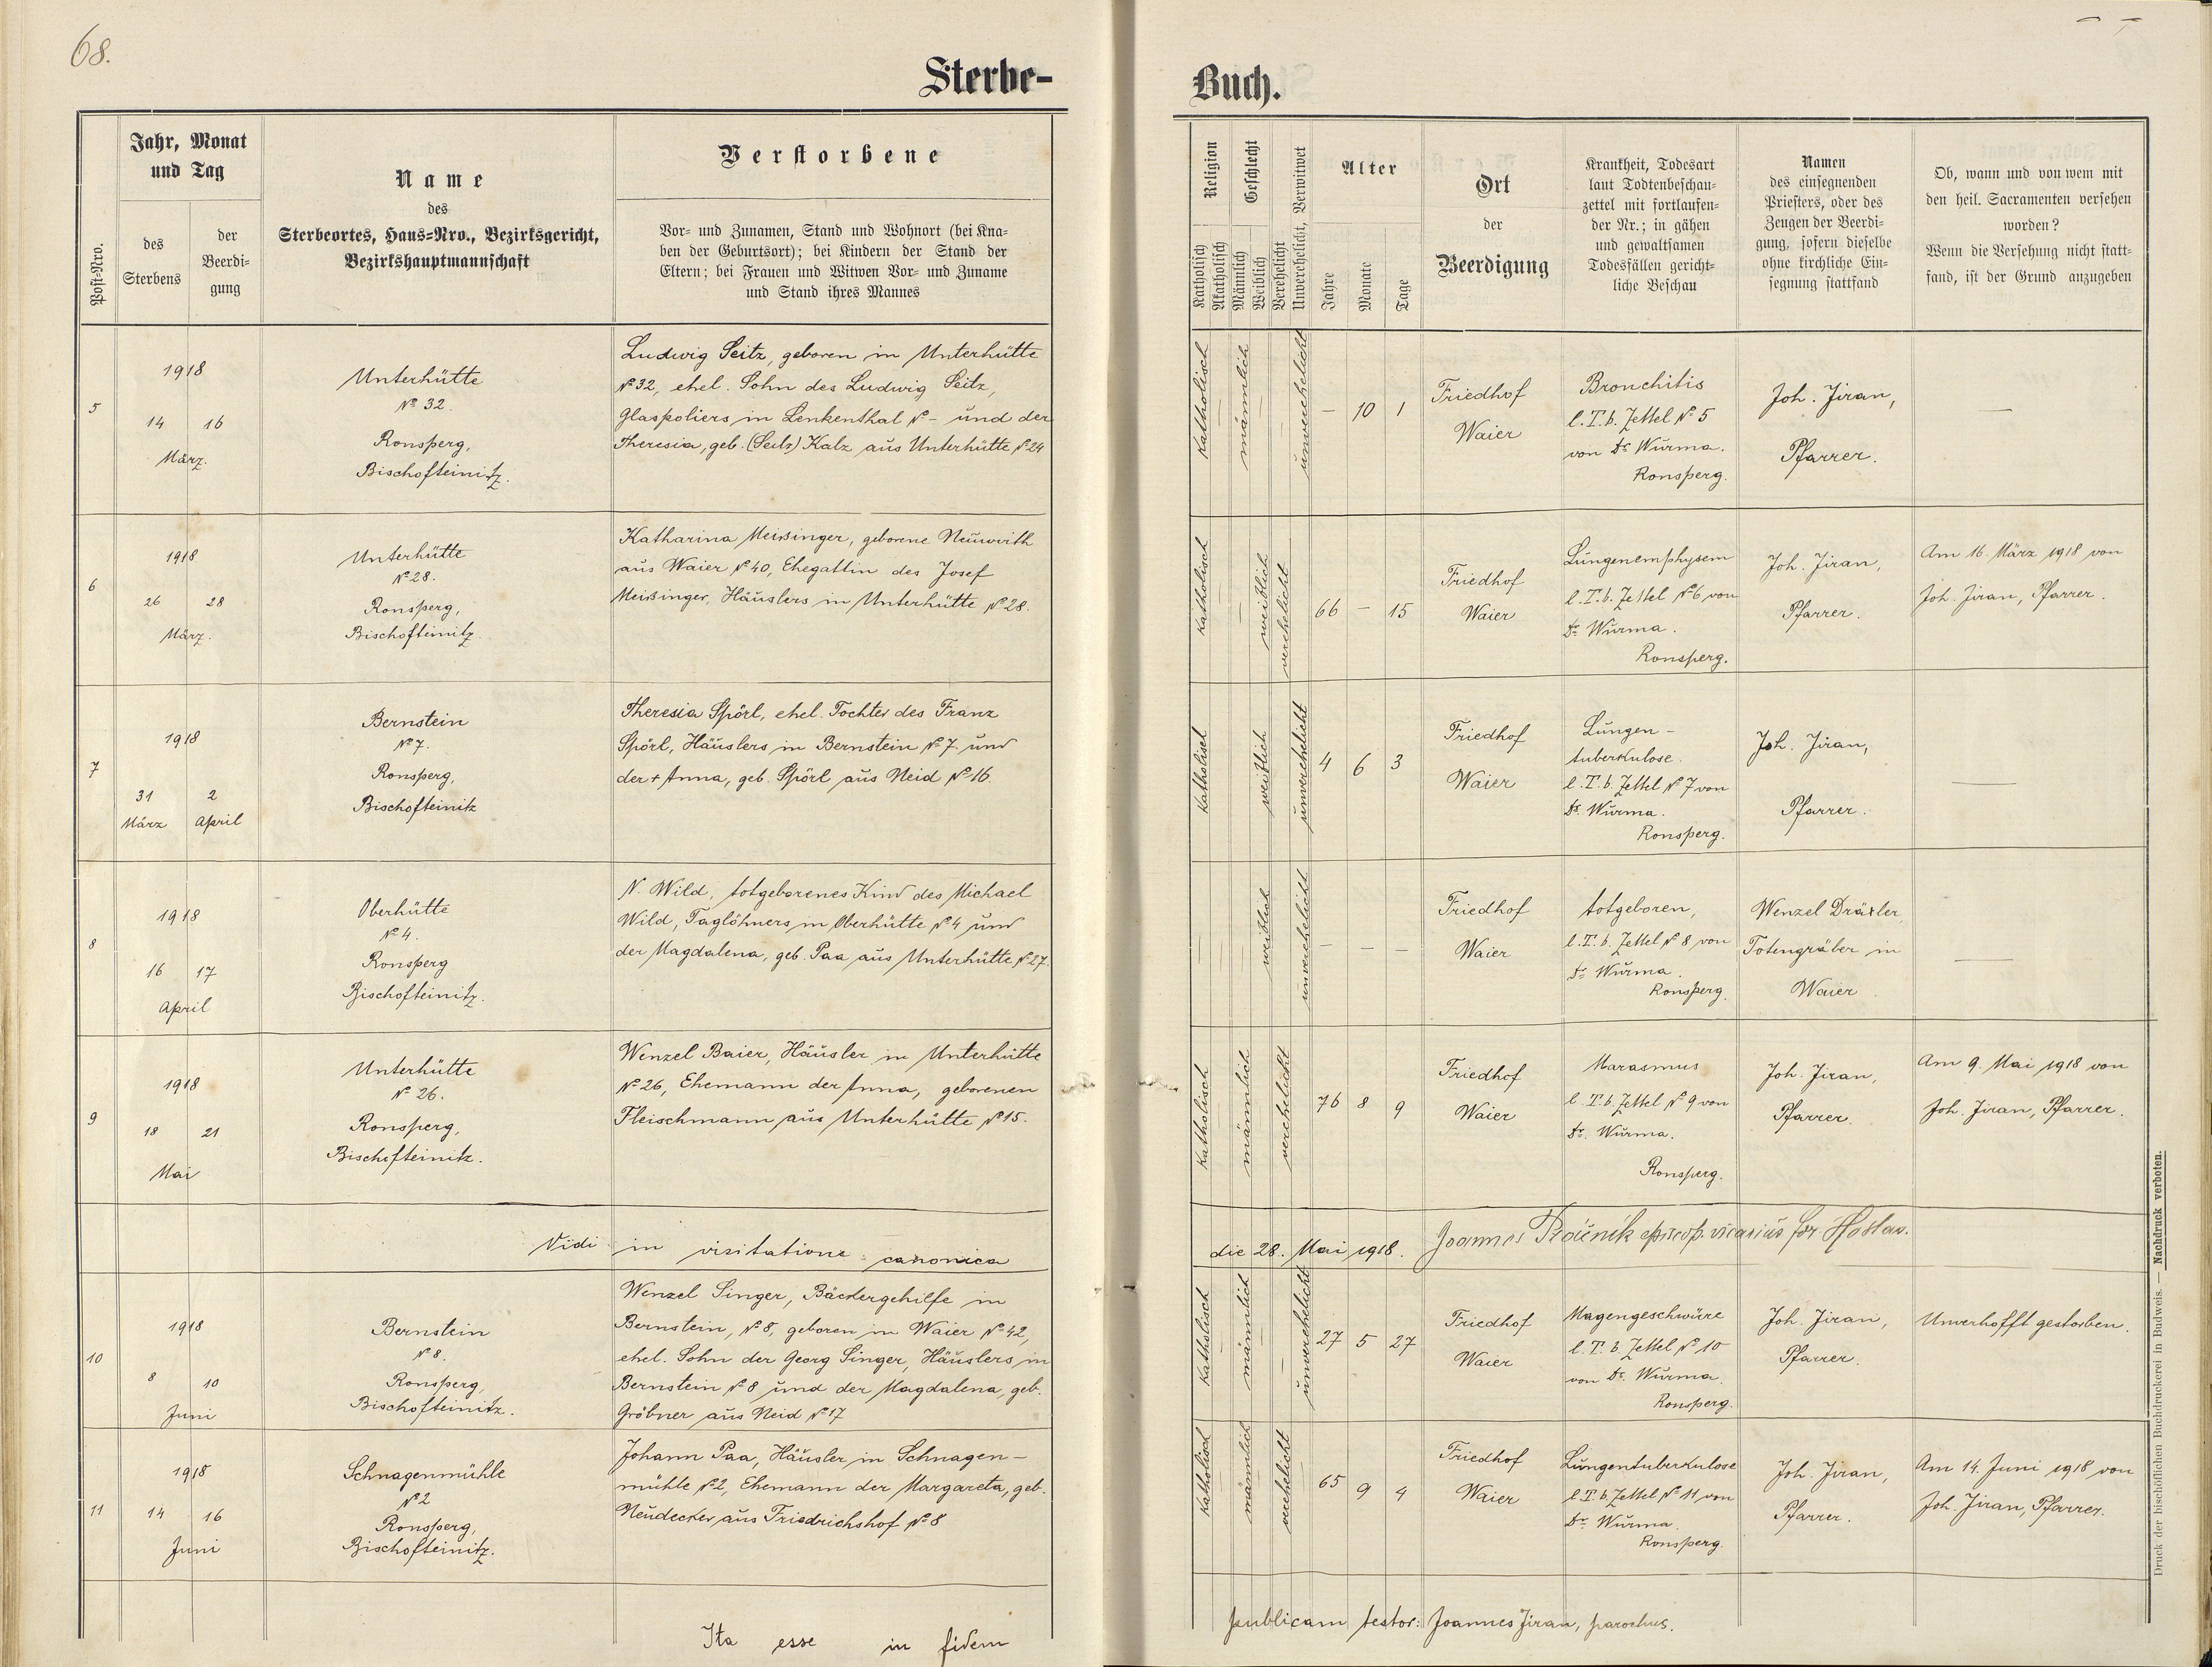 68.
Sterbe-
Buch.
Post-Nro.
Jahr, Monat
und Tag
des
Sterbens
der
Beerdi-
gung
Name
des
Sterbeortes, Haus-Nro., Bezirksgericht,
Bezirkshauptmannschaft
Verstorbene
Vor- und Zunamen, Stand und Wohnort (bei Kna-
ben der Geburtsort); bei Kindern der Stand der
Eltern; bei Frauen und Witwen Vor- und Zuname
und Stand ihres Mannes
Religion
Katholisch
Akatholisch
Geschlecht
Männlich
Weiblich
Verehelicht
Unverehelicht, Verwitwet
Alter
Jahre
Monate
Tage
Ort
der
Beerdigung
Krankheit, Todesart
laut Todtenbeschau-
zettel mit fortlaufen-
der Nr.; in gähen
und gewaltsamen
Todesfällen gericht-
liche Beschau
Namen
des einsegnenden
Priesters, oder des
Zeugen der Beerdi-
gung, sofern dieselbe
ohne kirchliche Ein-
segnung stattfand
Ob, wann und von wem mit
den heil. Sacramenten versehen
worden?
Wenn die Versehung nicht statt-
fand, ist der Grund anzugeben
5
1918
14 16
März.
Unterhütte
№ 32.
Ronsperg,
Bischofteinitz.
Ludwig Seitz, geboren in Unterhütte
№ 32, ehel. Sohn des Ludwig Seitz,
Glaspoliers in Lenkenthal № – und der
Theresia, geb. (Seitz) Kalz aus Unterhütte № 24
Katholisch
männlich
unverehelicht
– 10 1
Friedhof
Waier
Bronchitis
l. T. b. Zettel № 5
von Dr. Wurma.
Ronsperg.
Joh. Jiran,
Pfarrer.
—
6
1918
26 28
März.
Unterhütte
№ 28.
Ronsperg,
Bischofteinitz.
Katharina Meißinger, geborene Neuwirth
aus Waier № 40, Ehegattin des Josef
Meißinger, Häuslers in Unterhütte № 28.
Katholisch
weiblich
verehelicht
66 – 15
Friedhof
Waier
Lungenemphysem
l. T. b. Zettel № 6 von
Dr. Wurma.
Ronsperg.
Joh. Jiran,
Pfarrer.
Am 16. März 1918 von
Joh. Jiran, Pfarrer.
7
1918
31 2
März April
Bernstein
№ 7.
Ronsperg,
Bischofteinitz
Theresia Spörl, ehel. Tochter des Franz
Spörl, Häuslers in Bernstein № 7. und
der + Anna, geb. Spörl aus Neid № 16.
Katholisch
weiblich
unverehelicht
4 6 3
Friedhof
Waier
Lungen-
tuberkulose.
l. T. b. Zettel № 7 von
Dr. Wurma.
Ronsperg.
Joh. Jiran,
Pfarrer.
—
8
1918
16 17
April
Oberhütte
№ 4.
Ronsperg
Bischofteinitz.
N. Wild, totgeborenes Kind des Michael
Wild, Taglöhners in Oberhütte № 4 und
der Magdalena, geb. Paa aus Unterhütte № 27.
weiblich
unverehelicht
– – –
Friedhof
Waier
totgeboren,
l. T. b. Zettel № 8 von
Dr. Wurma.
Ronsperg.
Wenzel Dräxler,
Totengräber in
Waier
—
9
1918
18 21
Mai
Unterhütte
№ 26.
Ronsperg,
Bischofteinitz.
Wenzel Baier, Häusler in Unterhütte
№ 26, Ehemann der Anna, geborenen
Fleischmann aus Unterhütte № 15.
Katholisch
männlich
verehelicht
76 8 9
Friedhof
Waier
Marasmus
l. T. b. Zettel № 9 von
Dr. Wurma.
Ronsperg.
Joh. Jiran,
Pfarrer.
Am 9. Mai 1918 von
Joh. Jiran, Pfarrer.
Vidi in visitatione canonica
die 28. Mai 1918. Joannes vicarius for
10
1918
8 10
Juni
Bernstein
№ 8.
Ronsperg,
Bischofteinitz.
Wenzel Singer, Bäckergehilfe in
Bernstein, № 8, geboren in Waier № 42,
ehel. Sohn der Georg Singer, Häuslers in
Bernstein № 8 und der Magdalena, geb.
Gröbner aus Neid № 17
Katholisch
männlich
unverehelicht
27 5 27
Friedhof
Waier
Magengeschwüre
l. T. b. Zettel № 10
von Dr. Wurma.
Ronsperg.
Joh. Jiran,
Pfarrer.
Unverhofft gestorben.
11
1918
14 16
Juni
Schnagenmühle
№ 2
Ronsperg,
Bischofteinitz.
Johann Paa, Häusler in Schnagen-
mühle № 2, Ehemann der Margareta, geb.
Neudecker aus Friedrichshof № 8
Katholisch
männlich
verehelicht
65 9 4
Friedhof
Waier
Lungentuberkulose
l. T. b. Zettel № 11 von
Dr. Wurma.
Ronsperg.
Joh. Jiran,
Pfarrer.
Am 14. Juni 1918 von
Joh. Jiran, Pfarrer.
Ita esse in fidem
publicam testor: Joannes Jiran, parochus.
Druck der bischöflichen Buchdruckerei in Budweis. — Nachdruck verboten.